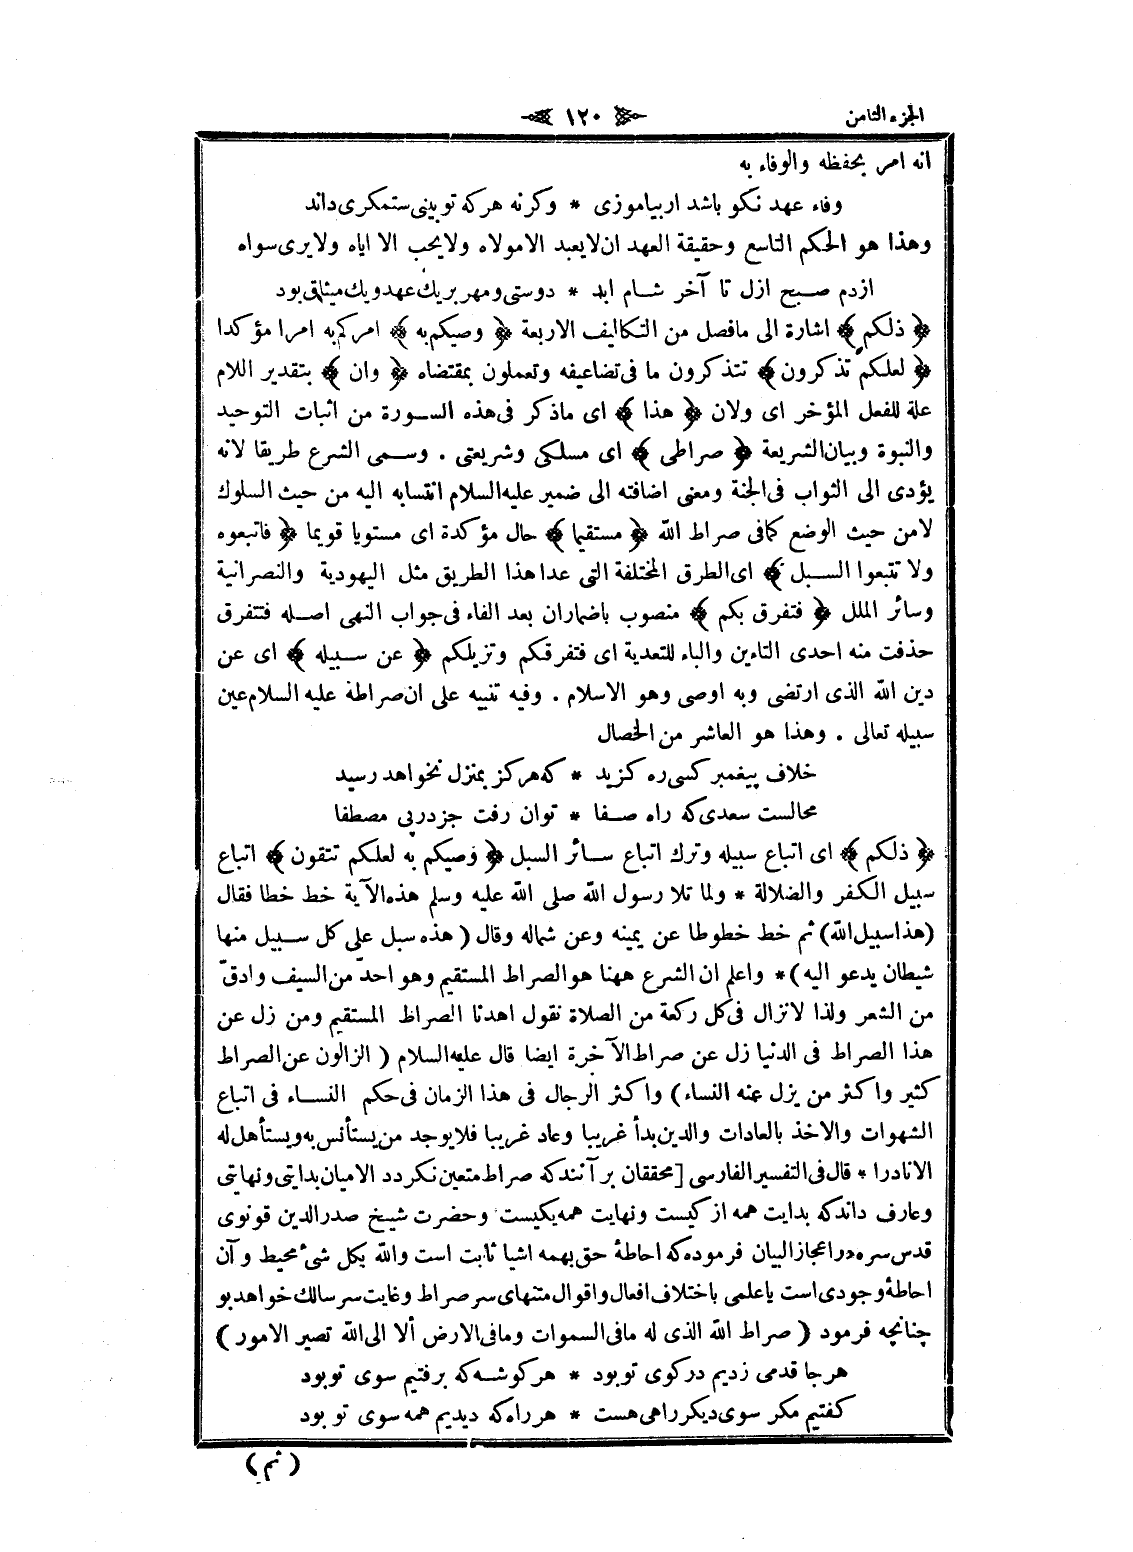 الجزء الثامن
١٢٠
انه امر بحفظه والوفاء به
وفاء عهد نكو باشد ار بياموزى * وكرنه هركه تو بينى ستمكرى داند
وهذا هو الحكم التاسع وحقيقة العهد ان لايعبد الا مولاه ولايحب الا اياه ولايرى سواه
ازدم صبح ازل تا آخر شام ابد * دوستى ومهر بريك عهد ويك ميثاق بود
﴿ ذلكم ﴾ اشارة الى مافصل من التكاليف الاربعة ﴿ وصيكم به ﴾ امركم به امرا مؤكدا
﴿ لعلكم تذكرون ﴾ تتذكرون ما فى تضاعيفه وتعملون بمقتضاه ﴿ وان ﴾ بتقدير اللام
علة للفعل المؤخر اى ولان ﴿ هذا ﴾ اى ماذكر فى هذه السورة من اثبات التوحيد
والنبوة وبيان الشريعة ﴿ صراطى ﴾ اى مسلكى وشريعتى . وسمى الشرع طريقا لانه
يؤدى الى الثواب فى الجنة ومعنى اضافته الى ضمير عليه السلام انتسابه اليه من حيث السلوك
لامن حيث الوضع كمافى صراط الله ﴿ مستقيما ﴾ حال مؤكدة اى مستويا قويما ﴿ فاتبعوه
ولا تتبعوا السبل ﴾ اى الطرق المختلفة التى عدا هذا الطريق مثل اليهودية والنصرانية
وسائر الملل ﴿ فتفرق بكم ﴾ منصوب باضمار ان بعد الفاء فى جواب النهى اصله فتتفرق
حذفت منه احدى التاءين والباء للتعدية اى فتفرقكم وتزيلكم ﴿ عن سبيله ﴾ اى عن
دين الله الذى ارتضى وبه اوصى وهو الاسلام . وفيه تنبيه على ان صراطه عليه السلام عين
سبيله تعالى . وهذا هو العاشر من الخصال
خلاف پيغمبر كسى ره كزيد * كه هركز بمنزل نخواهد رسيد
محالست سعدى كه راه صفا * توان رفت جز درپى مصطفا
﴿ ذلكم ﴾ اى اتباع سبيله وترك اتباع سائر السبل ﴿ وصيكم به لعلكم تتقون ﴾ اتباع
سبيل الكفر والضلالة * ولما تلا رسول الله صلى الله عليه وسلم هذه الآية خط خطا فقال
(هذا سبيل الله) ثم خط خطوطا عن يمينه وعن شماله وقال (هذه سبل على كل سبيل منها
شيطان يدعو اليه) * واعلم ان الشرع ههنا هو الصراط المستقيم وهو احدّ من السيف وادقّ
من الشعر ولذا لا تزال فى كل ركعة من الصلاة نقول اهدنا الصراط المستقيم ومن زل عن
هذا الصراط فى الدنيا زل عن صراط الآخرة ايضا قال عليه السلام ( الزالون عن الصراط
كثير واكثر من يزل عنه النساء ) واكثر الرجال فى هذا الزمان فى حكم النساء فى اتباع
الشهوات والاخذ بالعادات والدين بدأ غريبا وعاد غريبا فلا يوجد من يستأنس به ويستأهل له
الا نادرا * قال فى التفسير الفارسى [محققان بر آنندكه صراط متعين نكردد الا ميان بدايتى ونهايتى
وعارف داندكه بدايت همه از كيست ونهايت همه بكيست وحضرت شيخ صدرالدين قونوى
قدس سره در اعجاز البيان فرموده كه احاطۀ حق بهمه اشيا ثابت است والله بكل شىء محيط وآن
احاطۀ وجودى است يا علمى باختلاف افعال واقوال منتهاى سر صراط وغايت سر سالك خواهد بو
چنانچه فرمود ( صراط الله الذى له مافى السموات ومافى الارض ألا الى الله تصير الامور )
هر جا قدمى زديم در كوى تو بود * هر كوشه كه برفتيم سوى تو بود
كفتيم مكر سوى ديكر راهى هست * هر راه كه ديديم همه سوى تو بود
( ثم )